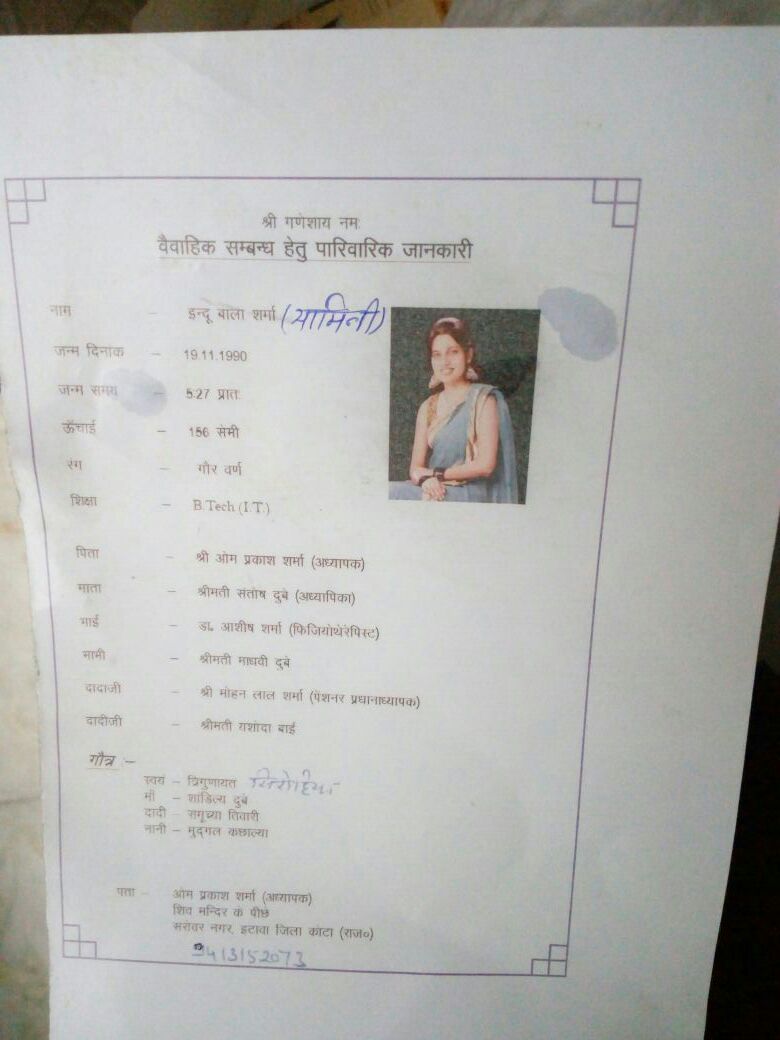 श्री गणेशाय नमः
वैवाहिक सम्बन्ध हेतु पारिवारिक जानकारी
नाम – इन्दू बाला शर्मा (यामिनी)
जन्म दिनाक – 19.11.1990
जन्म समय – 5:27 प्रातः
ऊँचाई – 156 सेमी
रंग – गौर वर्ण
शिक्षा – B.Tech (I.T.)
पिता – श्री ओम प्रकाश शर्मा (अध्यापक)
माता – श्रीमती संतोष दुबे (अध्यापिका)
भाई – डा. आशीष शर्मा (फिजियोथेरेपिस्ट)
भाभी – श्रीमती माधवी दुबे
दादाजी – श्री मोहन लाल शर्मा (पेंशनर प्रधानाध्यापक)
दादीजी – श्रीमती यशोदा बाई
गौत्र :–
स्वयं – त्रिगुणायत
माँ – शांडिल्य दुबे
दादी – तिवारी
नानी – मुद्गल कछाल्या
पता – ओम प्रकाश शर्मा (अध्यापक)
शिव मन्दिर के पीछे
सरोवर नगर, इटावा जिला कोटा (राज०)
9413152073